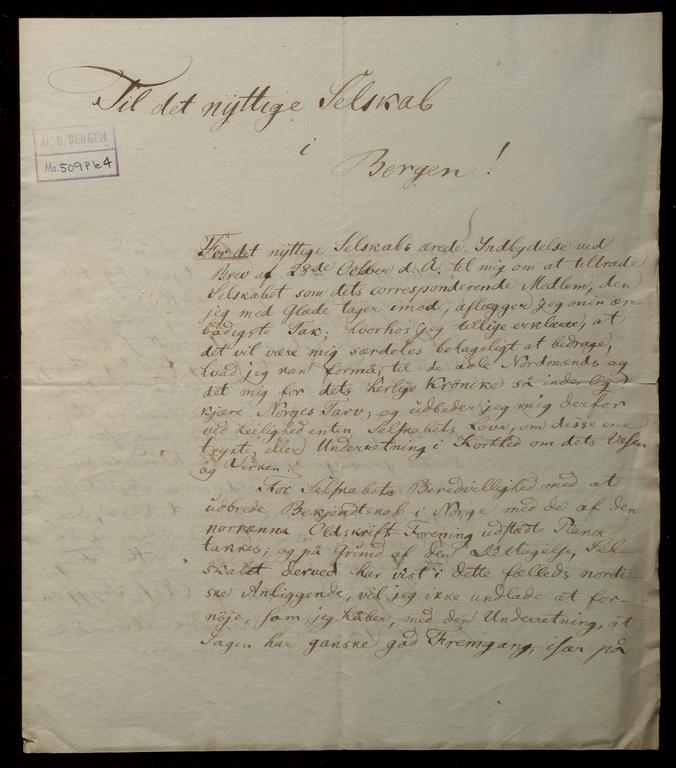 Til det nyttige Selskab
i
Bergen!
U. B. BERGEN
Ms. 509 ple 4
For det nyttige Selskabs ærede Indbydelse ved
Brev af 28de Octber d. A. til mig om at tiltræde
Selskabet som dets corresponderende Medlem, den
jeg med Glæde tager imod, aflægger jeg min ær-
bødigste Tak; hvorhos jeg tillige erklærer, at
det vil være mig særdeles behageligt at bidrage,
hvad jeg kan formå, til de ædle Nordmænds og
det mig for dets herlige Krönike så inderlig
kjære Norges Tarv; og udbeder jeg mig derfor
ved Leilighed enten Selskabets Love, om disse ere
trykte, eller Underretning i Korthed om dets Væsen
og Virken.
For Selskabets Beredvillighed med at
udbrede Bekjendtskab i Norge med de af den
norræna Oldskrift-Forening udstædte Planer
takkes; og på Grund af den Deeltagelse, Sel-
skabet derved har vist i dette fælleds nordi-
ske Anliggende, vil jeg ikke undlade at for-
nøje, som jeg håber, med den Underretning, at
Sagen har ganske god Fremgang, især på